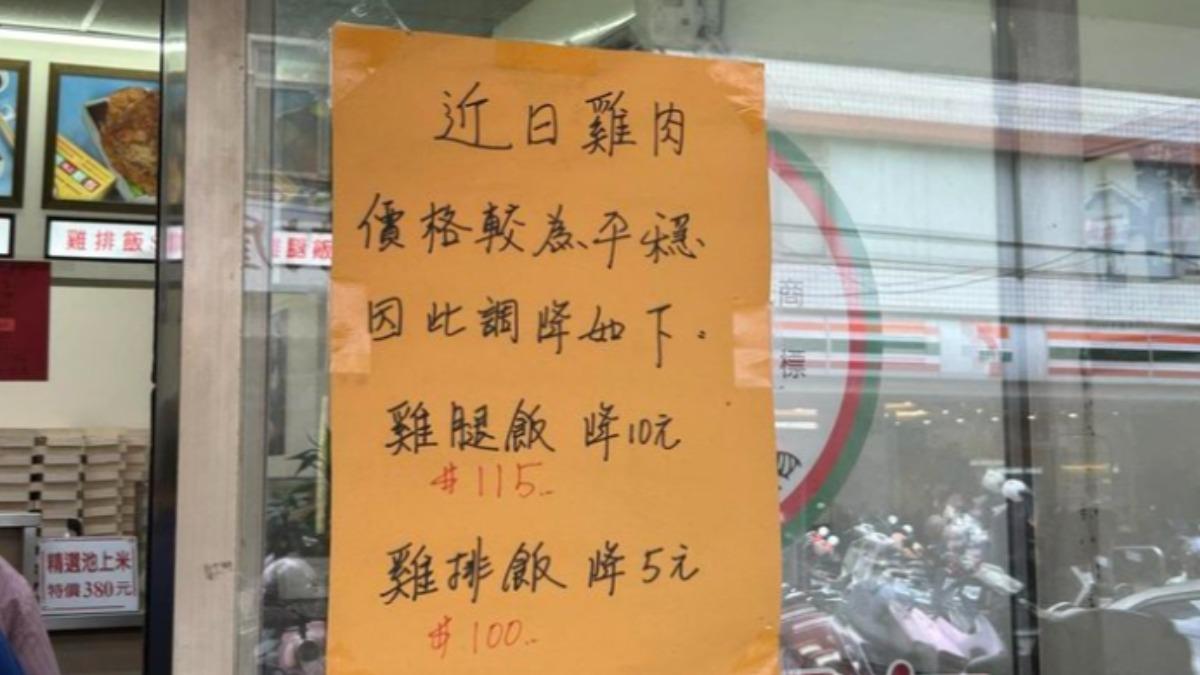 近日雞肉
價格較為平穩
因此調降如下。
雞腿飯 降10元
#115..
雞排飯 降5元
#100..
雞排飯
雞腿飯
精選池上米
特價380元
商
標